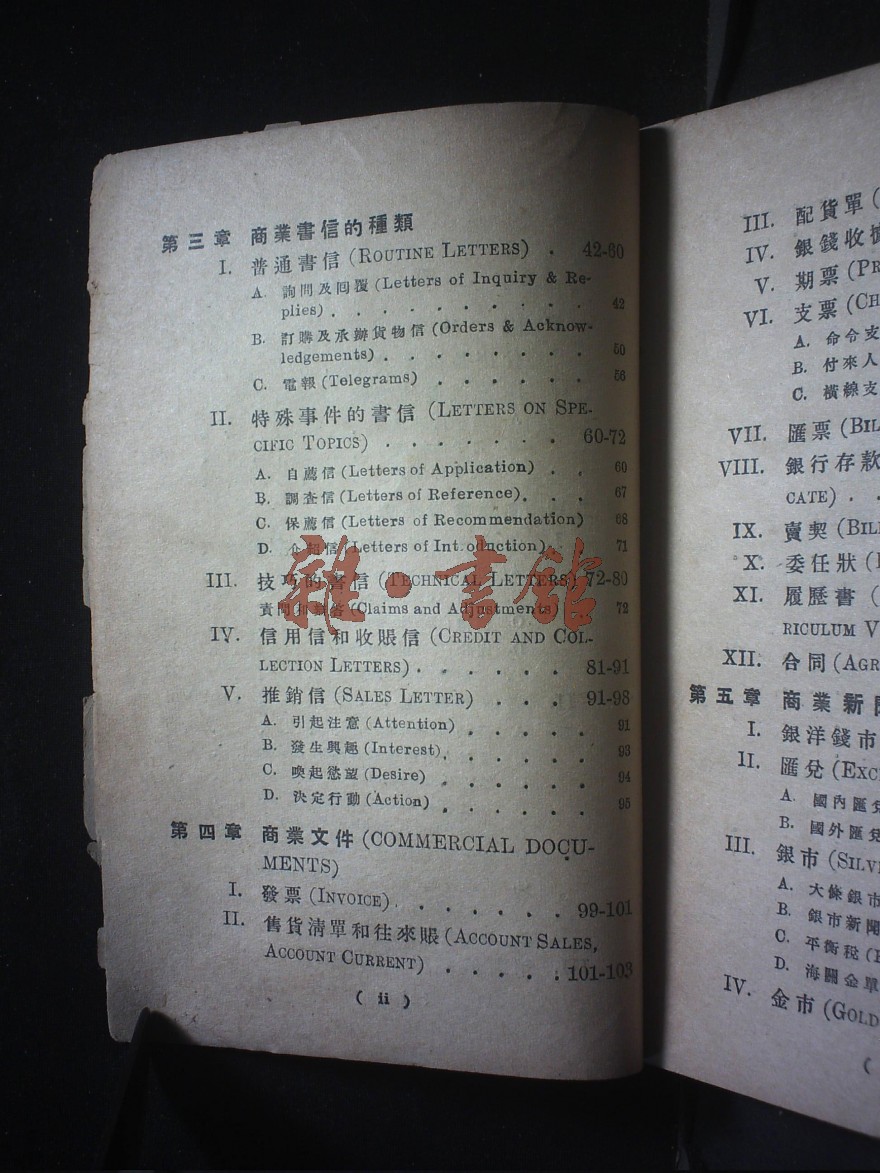 第三章 商業書信的種類
I. 普通書信 (ROUTINE LETTERS) . 42-60
A. 詢問及囘覆 (Letters of Inquiry & Re-
plies) . . . . . . . . . 42
B. 訂購及承辦貨物信 (Orders & Acknow-
ledgements) . . . . . . . . 50
C. 電報 (Telegrams) . . . . . . 56
II. 特殊事件的書信 (LETTERS ON SPE-
CIFIC TOPICS) . . . . . . . 60-72
A. 自薦信 (Letters of Application) . . 60
B. 調查信 (Letters of Reference). . . 67
C. 保薦信 (Letters of Recommendation) 68
D. 介紹信 (Letters of Introduction) . 71
III. 技巧的書信 (TECHNICAL LETTERS) 72-80
(Claims and Adjustments) 72
IV. 信用信和收賬信 (CREDIT AND COL-
LECTION LETTERS) . . . . . . 81-91
V. 推銷信 (SALES LETTER) . . . 91-98
A. 引起注意 (Attention) . . . . . 91
B. 發生興趣 (Interest) . . . . . 93
C. 喚起慾望 (Desire) . . . . . . 94
D. 決定行動 (Action) . . . . . . 95
第四章 商業文件 (COMMERCIAL DOCU-
MENTS)
I. 發票 (INVOICE) . . . . . . . 99-101
II. 售貨清單和往來賬 (ACCOUNT SALES,
ACCOUNT CURRENT) . . . . . 101-103
( ii )
III. 配貨單 (
IV. 銀錢收據
V. 期票 (PR
VI. 支票 (CH
A. 命令支
B. 付來人
C. 橫線支
VII. 匯票 (BIL
VIII. 銀行存款
CATE) . .
IX. 賣契 (BIL
X. 委任狀 (
XI. 履歷書 (
RICULUM V
XII. 合同 (AGR
第五章 商業新聞
I. 銀洋錢市
II. 匯兌 (EXC
A. 國內匯兌
B. 國外匯兌
III. 銀市 (SILV
A. 大條銀市
B. 銀市新聞
C. 平衡稅 (
D. 海關金單
IV. 金市 (GOLD
(
雜·書館